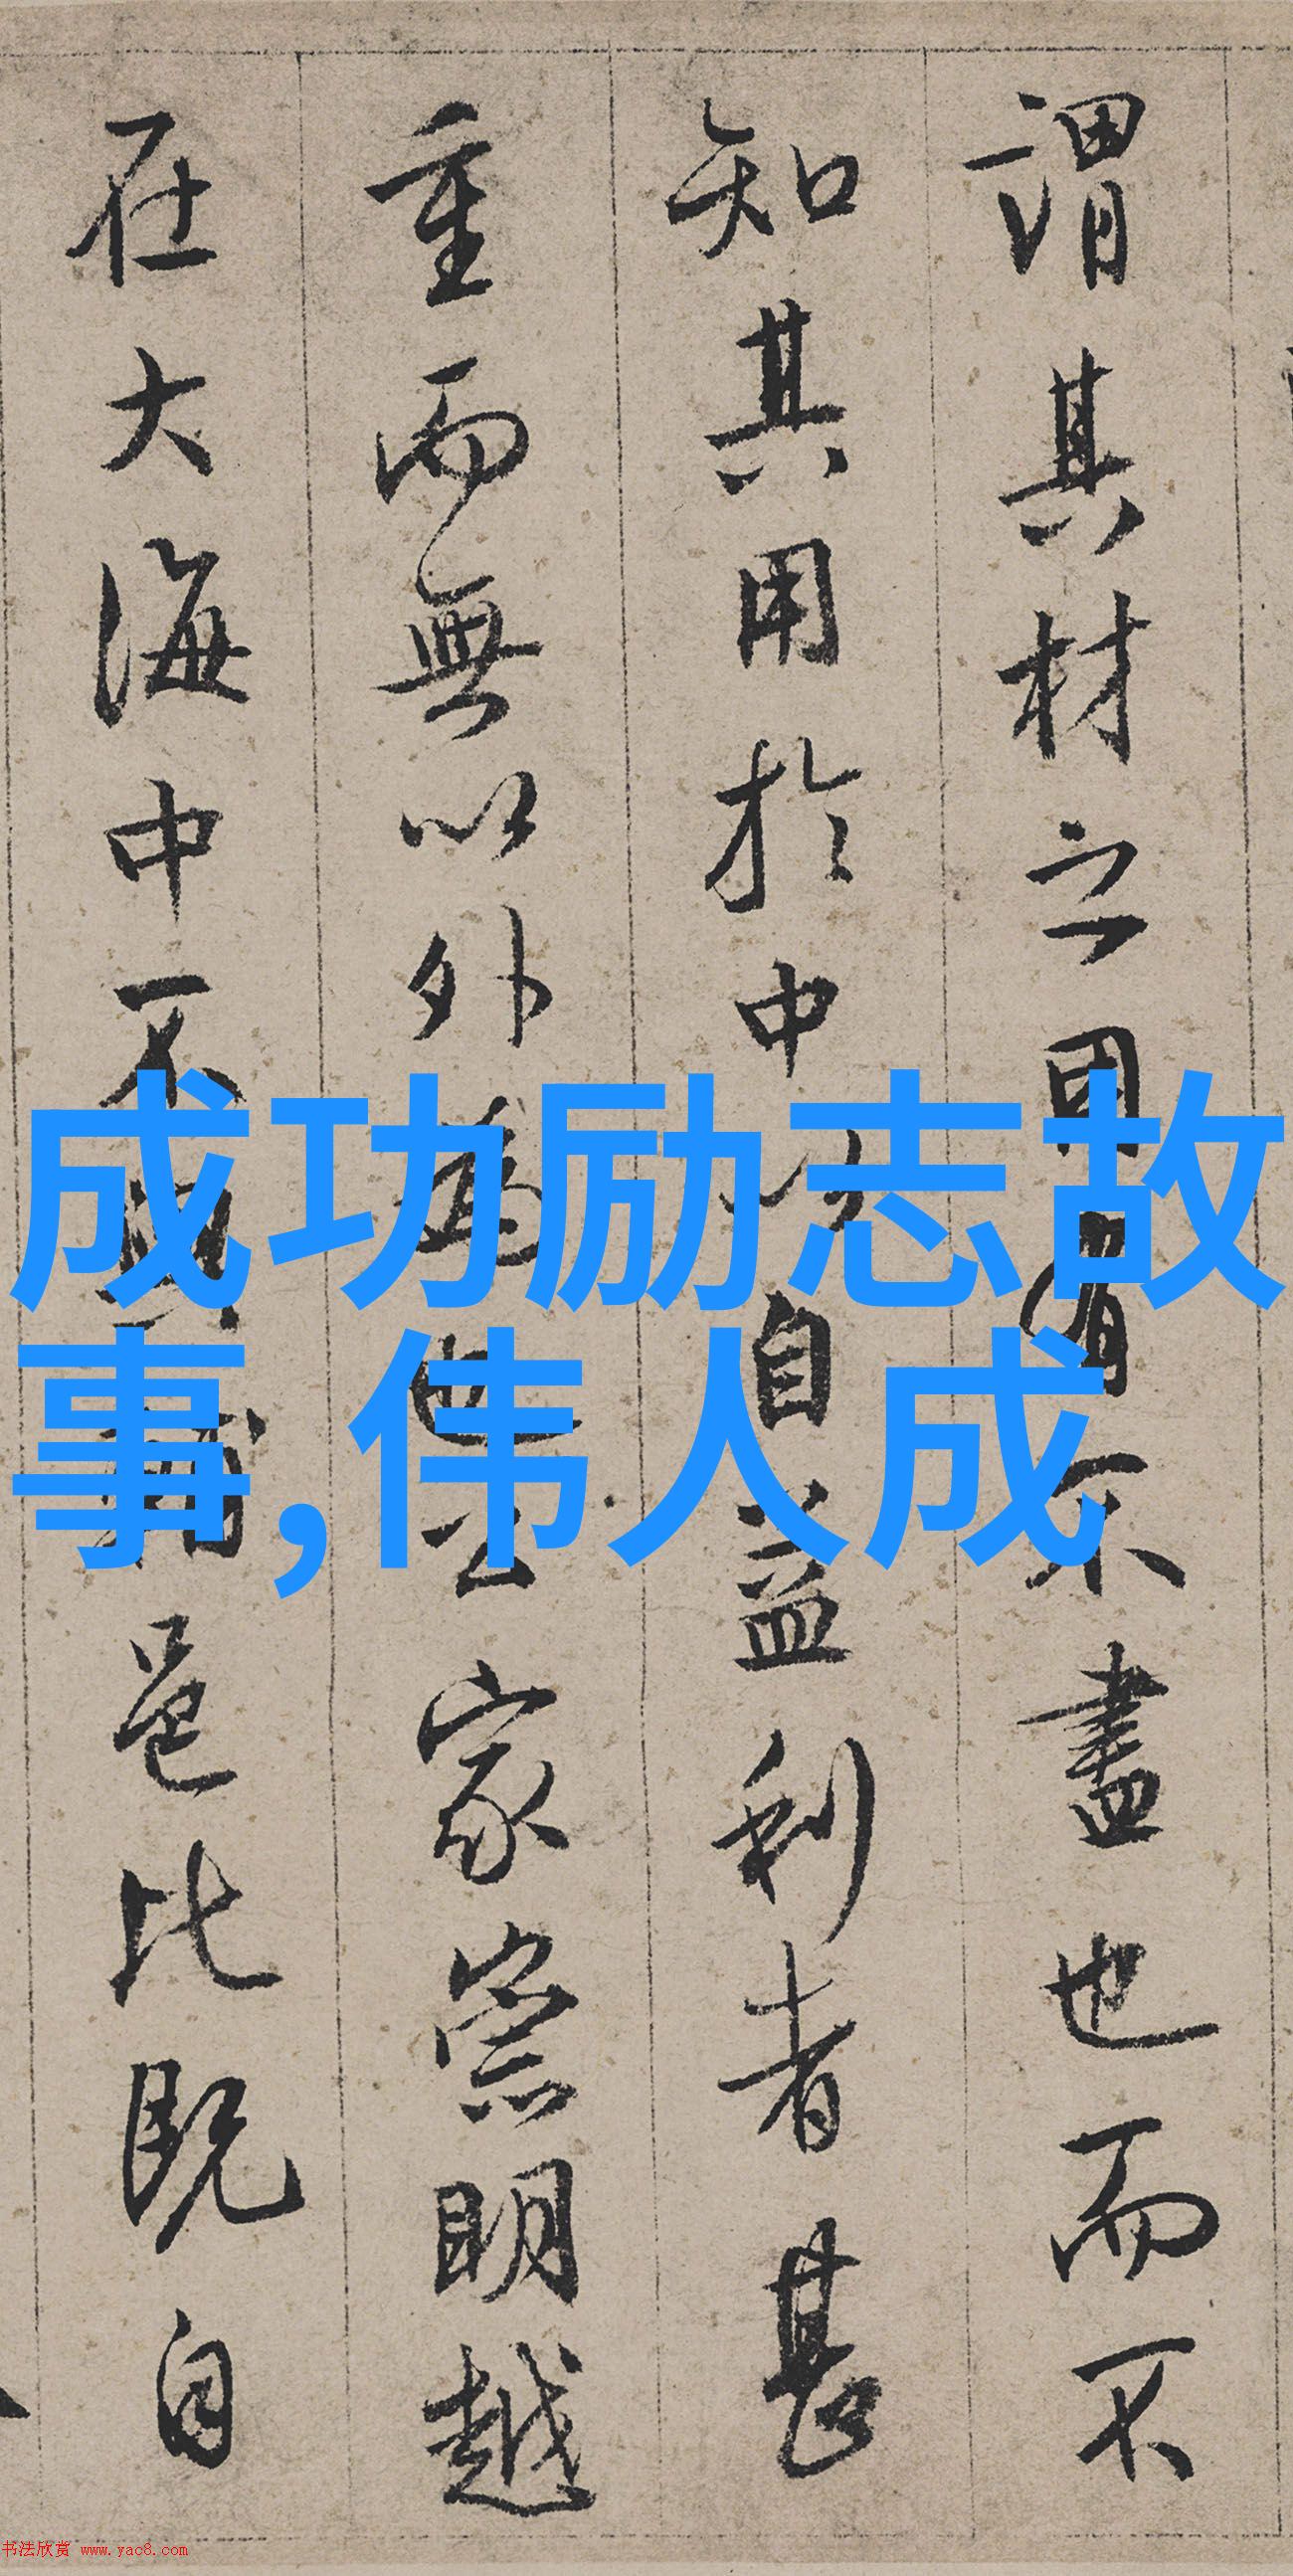 謂其材之用有不盡也而不
知其用於中以自益利者甚
重而無以外為家崇明越
在大海中不邑比既自
成功励志故
事,伟人成
书法欣赏 www.yac8.com